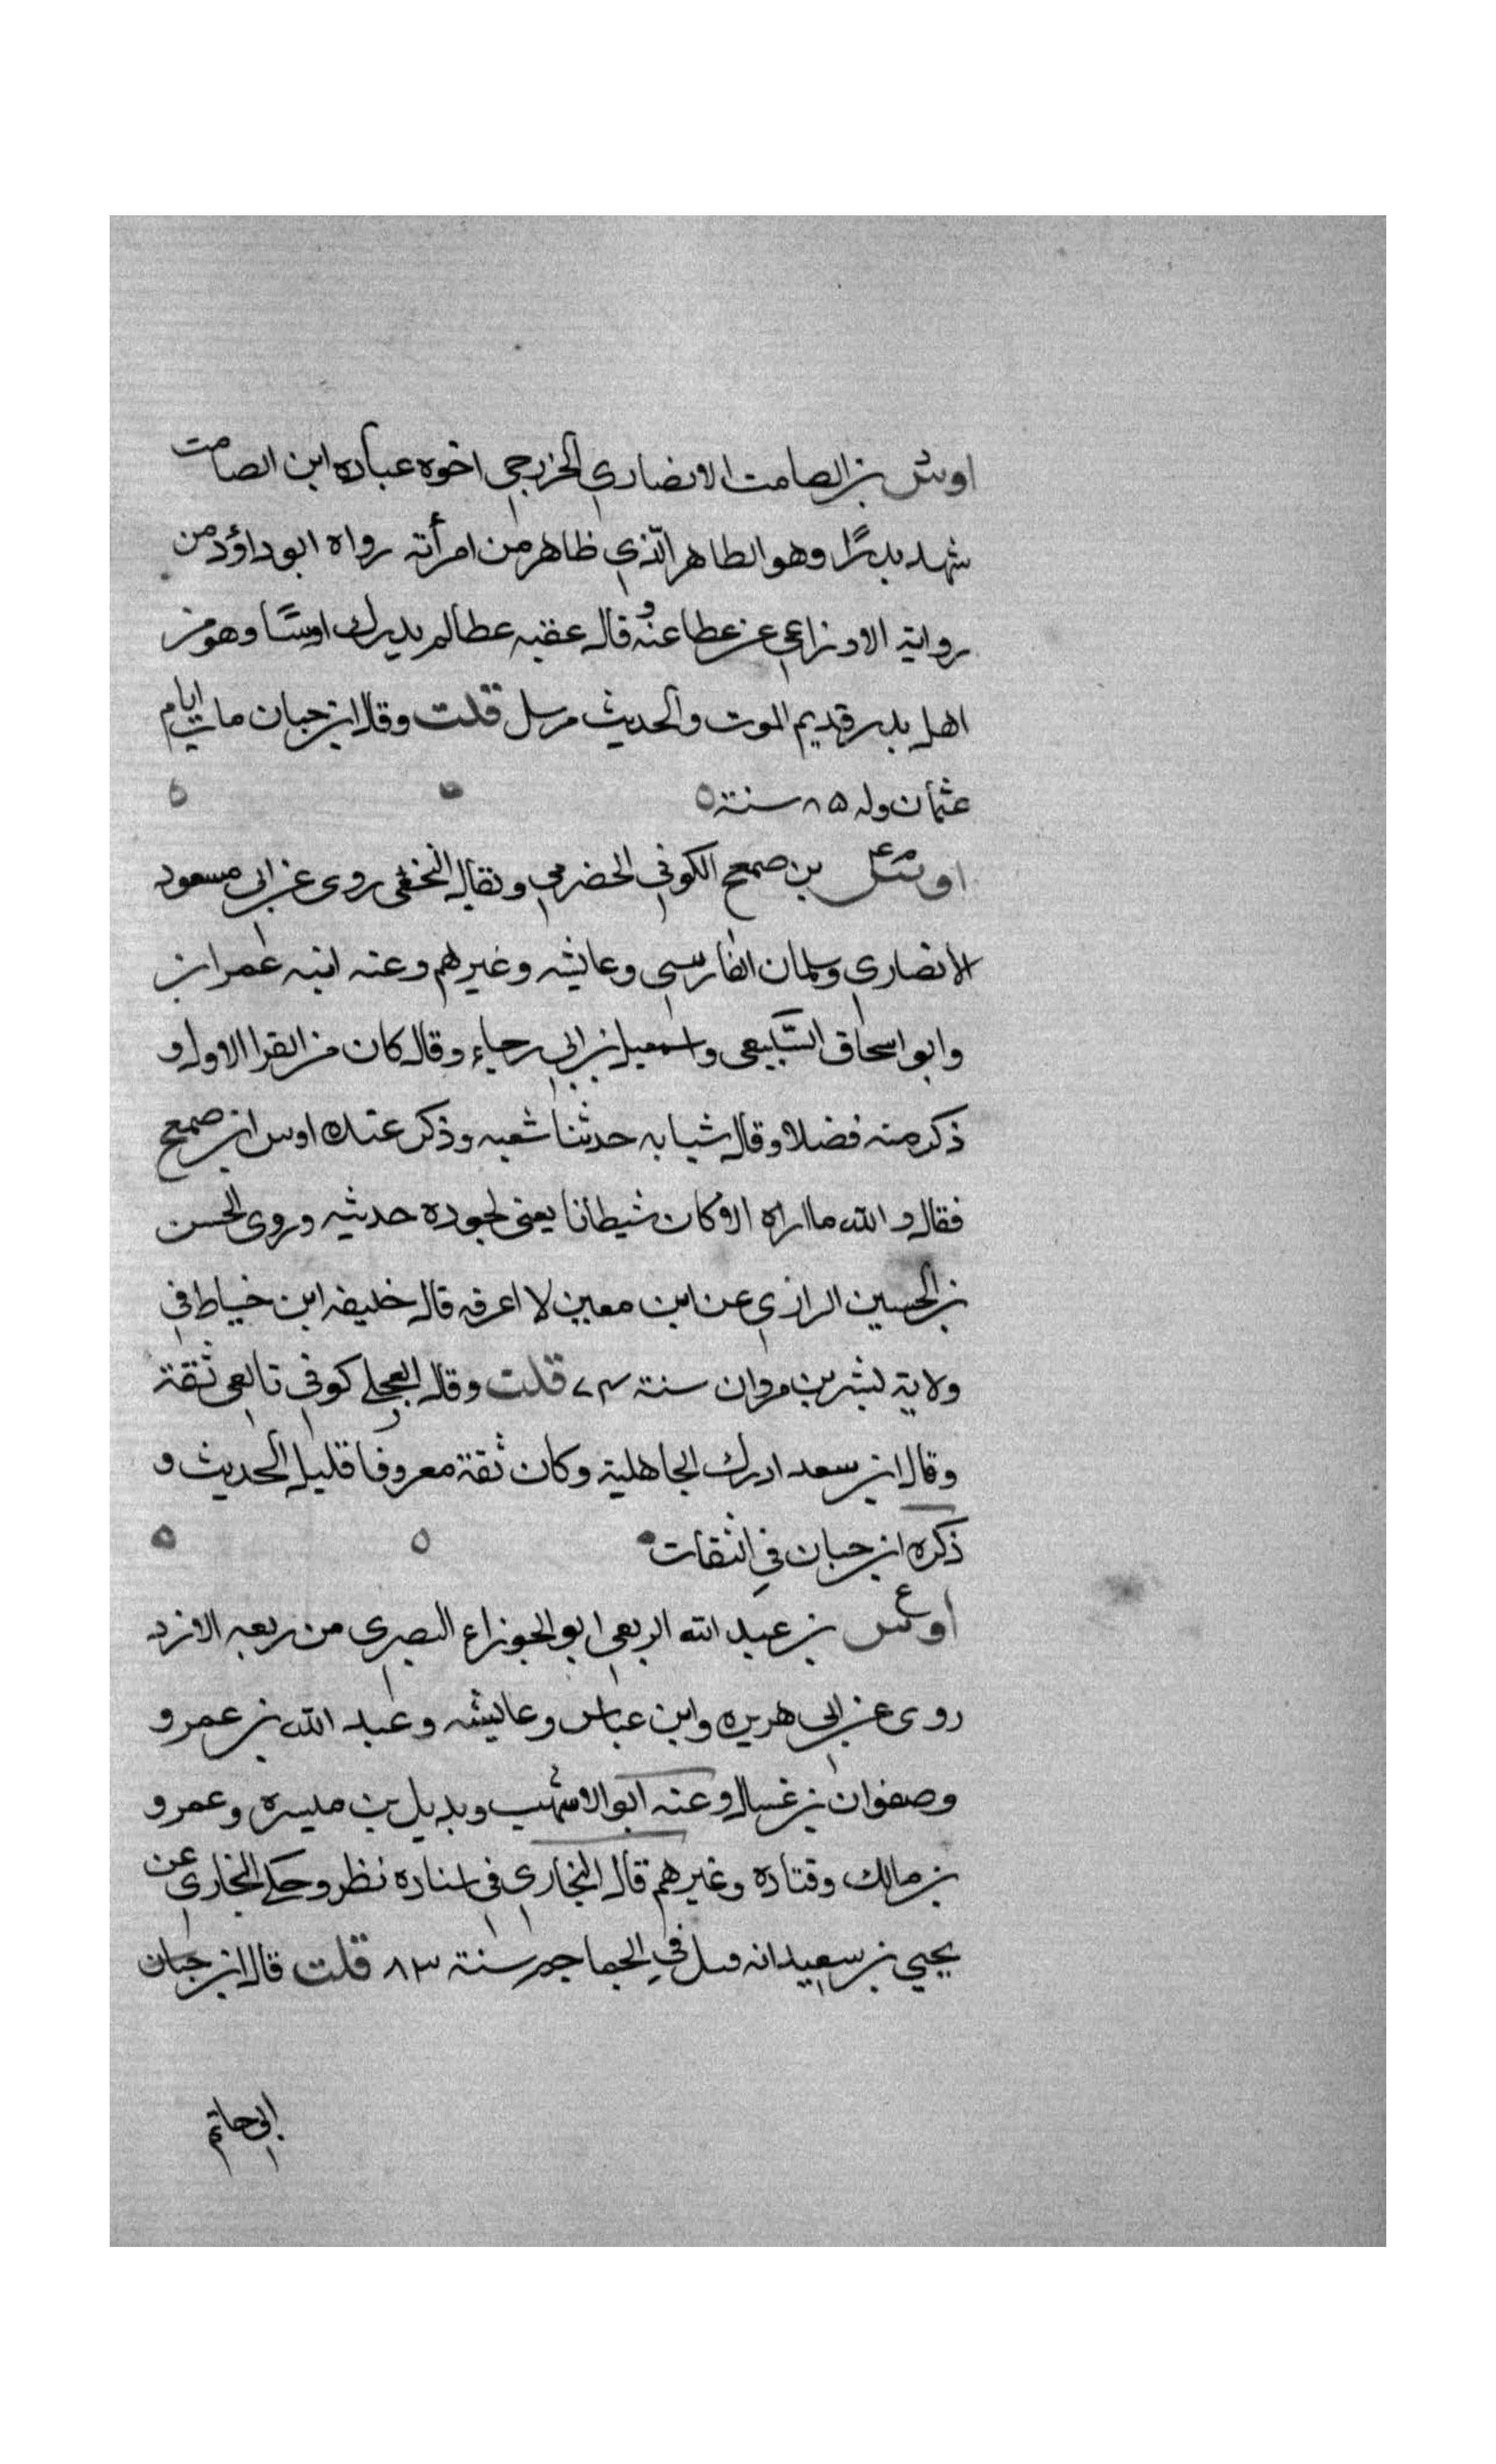 اوس بن الصامت الانصاري الخزرجي اخوه عباده ابن الصامت
شهد بدرًا وهو الطاهر الّذي ظاهر من امرأته رواه ابو داؤد من
رواية الاوزاعي عن عطا عنه وقال عقبه عطا لم يدرك اوسًا وهو من
اهل بدر قديم الموت والحديث مرسل قلت وقال ابن حبان مات ايام
عثمان وله ٨٥ سنته
اوس بن ضمعج الكوفي الحضرمي ويقال النخعي روى عن ابي مسعود
الانصاري وسلمان الفارسي وعايشه وغيرهم وعنه ابنه عمران
وابو اسحاق السّبيعي واسمعيل بن ابي رجاء وقال كان من القرا الاول و
ذكر منه فضلا وقال شبابه حدثنا شعبه وذكر عنده اوس ابن ضمعج
فقال والله ما اراه الا كان شيطانا يعني لجوده حديثه وروى الحسن
بن الحسين الرازي عن ابن معين لا اعرفه قال خليفه ابن خياط في
ولاية بشر بن مروان سنة ٧٤ قلت وقال العجلي كوفي تابعي ثقة
وقال ابن سعد ادرك الجاهلية وكان ثقة معروفا قليل الحديث و
ذكره ابن حبان في الثقات
اوس بن عبد الله الربعي ابو الجوزاء البصري من ربعه الازد
روى عن ابي هريره وابن عباس وعايشه وعبد الله بن عمرو
وصفوان بن غسال وعنه ابو الاشهب وبديل بن ميسره وعمرو
بن مالك وقتاده وغيرهم قال البخاري في اسناده نظر وحكى البخاري عن
يحيي بن سعيد انه قتل في الجماجم سنة ٨٣ قلت قال ابن حبان
ابي حاتم